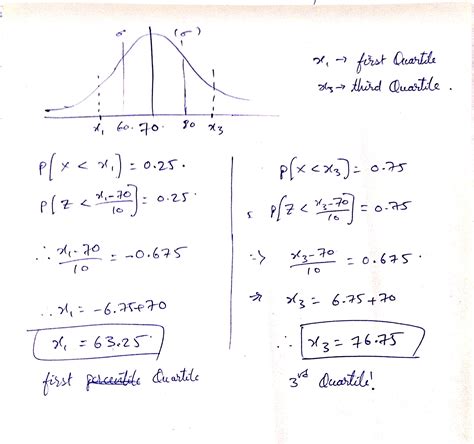 σ (σ)
x₁ 60. 70. 80 x₃
x₁ → first Quartile
x₃ → third Quartile.
P[X < x₁] = 0.25.
P[Z < (x₁-70)/10] = 0.25.
∴ (x₁-70)/10 = -0.675
∴ x₁ = -6.75+70
x₁ = 63.25
first percentile Quartile
P[X < x₃] = 0.75
P[Z < (x₃-70)/10] = 0.75
⇒ (x₃-70)/10 = 0.675.
⇒ x₃ = 6.75+70
∴ x₃ = 76.75
3rd Quartile!